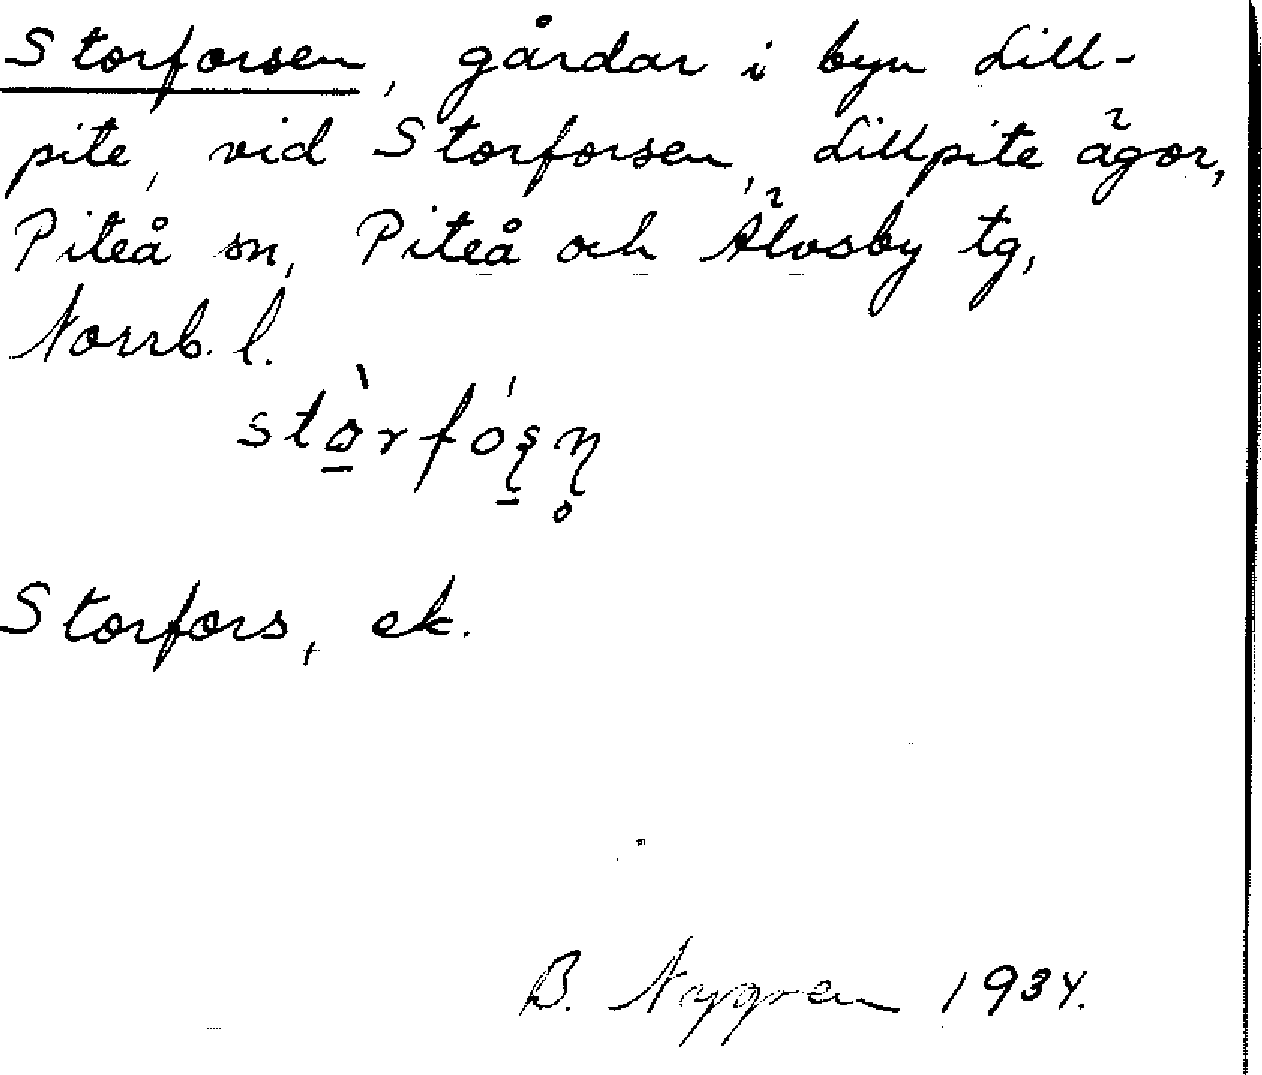 Storforsen, gårdar i byn Lill-
pite, vid Storforsen, Lillpite ägor,
Piteå sn, Piteå och Älvsby tg,
Norrb. l.
stò̠rfó̠ʂɳ̥
Storfors, ek.
B. Nygren 1934.